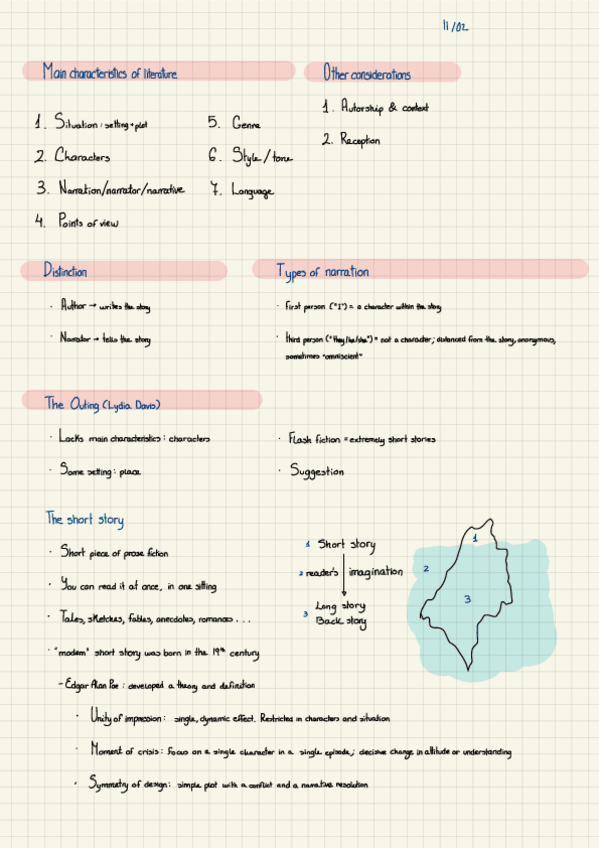 11/02
Main characteristics of literature
1. Situation: setting+plot
2. Characters
3. Narration/narrator/narrative
4. Points of view
5. Genre
6. Style/tone
7. Language
Other considerations
1. Autorship & context
2. Reception
Distinction
· Author → writes the story
· Narrator → tells the story
Types of narration
· First person ("I") = a character within the story
· Third person ("they/he/she") = not a character; distanced from the story, anonymous,
sometimes "omniscient"
The Outing (Lydia Davis)
· Lacks main characteristics: characters
· Some setting: place
· Flash fiction = extremely short stories
· Suggestion
The short story
· Short piece of prose fiction
· You can read it at once, in one sitting
· Tales, sketches, fables, anecdotes, romances...
· "modern" short story was born in the 19th century
- Edgar Alan Poe: developed a theory and definition
· Unity of impression: single, dynamic effect. Restricted in characters and situation
· Moment of crisis: focus on a single character in a single episode; decisive change in attitude or understanding
· Symmetry of design: simple plot with a conflict and a narrative resolution
1 Short story
2 reader's imagination
3 Long story
Back story
1
2
3